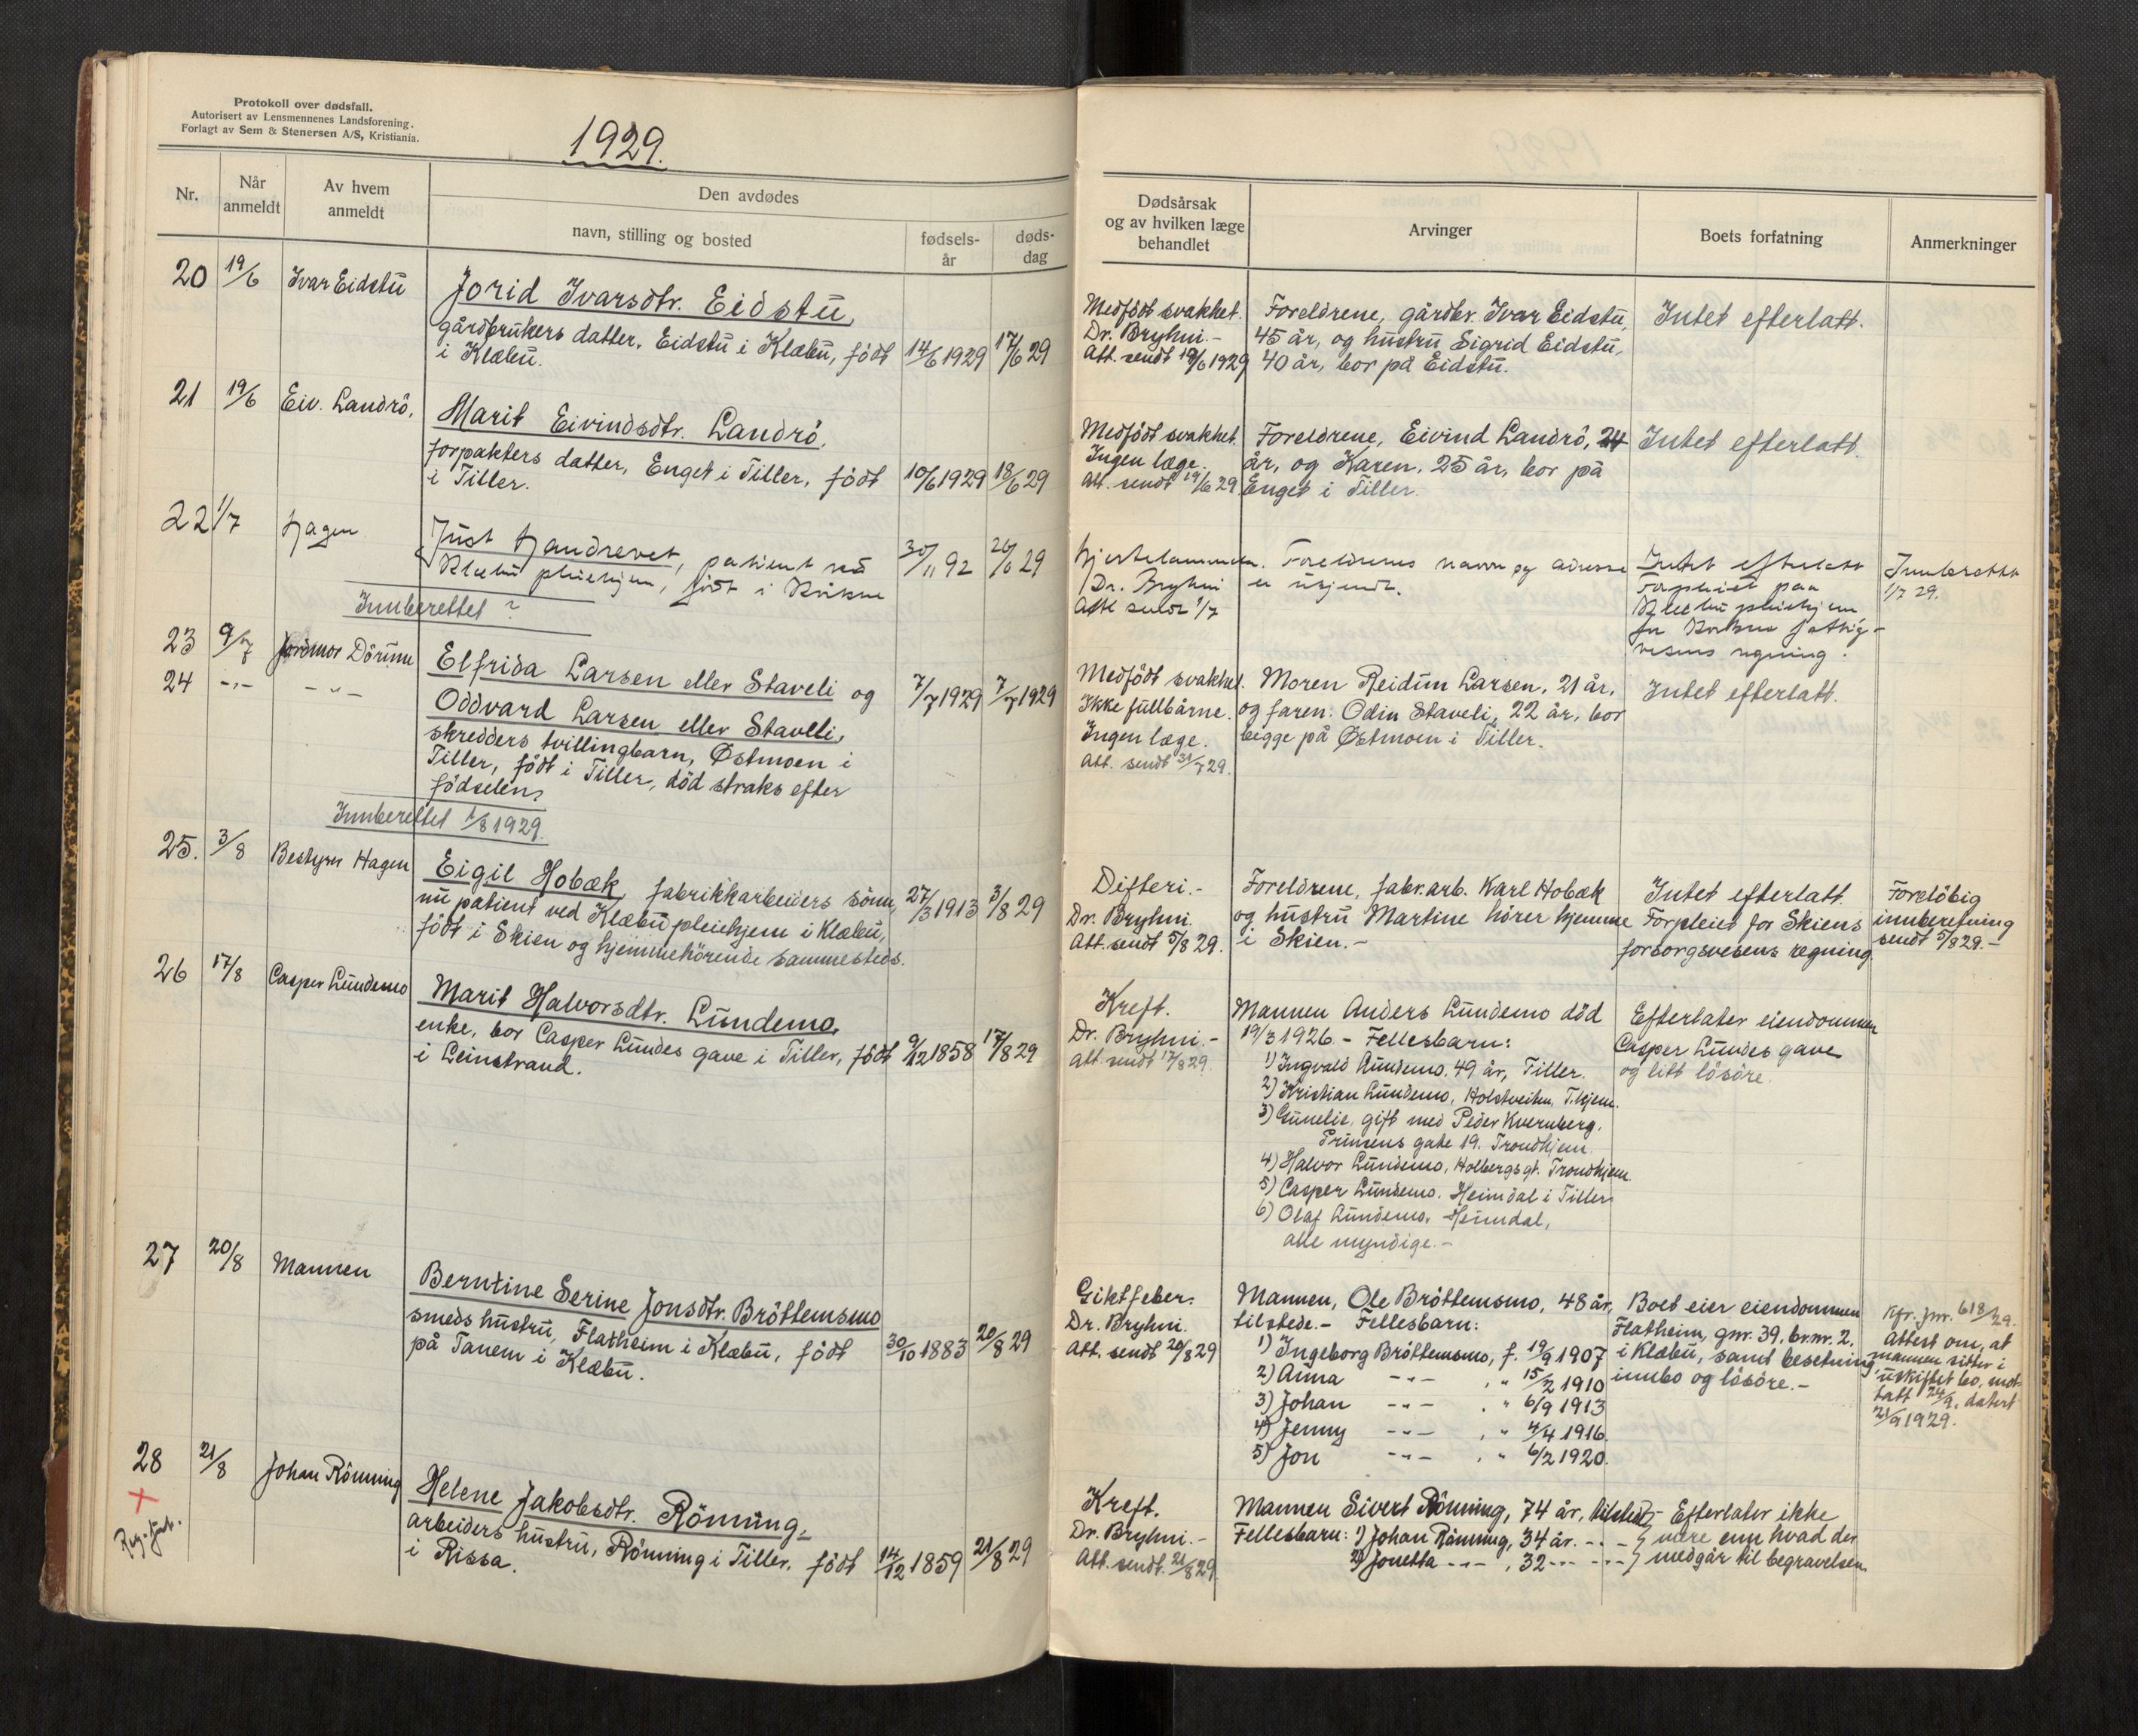 Protokoll over dødsfall.
Autorisert av Lensmennenes Landsforening.
Forlagt av Sem & Stenersen A/S, Kristiania.
1929.
Nr.
Når anmeldt
Av hvem anmeldt
Den avdødes
navn, stilling og bosted
fødsels-år
døds-dag
20 19/6 Ivar Eidstu Jorid Ivarsdtr. Eidstu,
gårdbrukers datter, Eidstu i Klæbu, födt 14/6 1929 17/6 29
i Klæbu.
21 19/6 Eiv. Landrö, Marit Eivindsdtr. Landrö,
forpakters datter, Enget i Tiller, födt 10/6 1929 18/6 29
i Tiller.
22 1/7 Hagen Just Haudrevet, patient ved 30/11 92 26/6 29
Klæbu pleiehjem, født i Kvikne
Innberettet ?
23 9/7 Jordmor Dörum Elfrida Larsen eller Staveli og 7/7 1929 7/7 1929
24 -"- -"- Oddvard Larsen eller Staveli,
skredders tvillingbarn, Østmoen i
Tiller, födt i Tiller, död straks efter
födselen.
Innberettet 1/8 1929.
25. 3/8 Bestyrer Hagen Eigil Hobæk, fabrikkarbeiders sönn, 27/3 1913 3/8 29
nu patient ved Klæbu pleiehjem i Klæbu,
födt i Skien og hjemmehörende sammesteds.
26 17/8 Casper Lundemo Marit Halvorsdtr. Lundemo,
enke, bor Casper Lundes gave i Tiller, födt 9/12 1858 17/8 29
i Leinstrand.
27 20/8 Mannen Berntine Serine Jonsdtr. Bröttemsmo
smeds hustru, Flatheim i Klæbu, födt 30/10 1883 20/8 29
på Tanem i Klæbu.
28 21/8 Johan Rönning Helene Jakobsdtr. Rönning,
+ arbeiders hustru, Rönning i Tiller, födt 14/12 1859 21/8 29
i Rissa.
Dødsårsak
og av hvilken læge
behandlet
Arvinger
Boets forfatning
Anmerkninger
Medfödt svakhet. Foreldrene, gårdbr. Ivar Eidstu, Intet efterlatt.
Dr. Bryhni.- 45 år, og hustru Sigrid Eidstu,
Att. sendt 19/6 1929 40 år, bor på Eidstu.
Medfödt svakhet. Foreldrene, Eivind Landrö, 24 Intet efterlatt.
Ingen læge. år, og Karen, 25 år, bor på
Att. sendt 19/6 29 Enget i Tiller.
Hjertelammelse. Foreldrenes navn og adresse Intet efterlatt Innberettet
Dr. Bryhni er ukjendt. Forpleiet paa 1/7 29.
Att sendt 1/7 Klæbu pleiehjem
for Kvikne fattig-
vesens regning.
Medfödt svakhet. Moren Reidun Larsen, 21 år, Intet efterlatt.
Ikke fullbårne. og faren: Odin Staveli, 22 år, bor
Ingen læge. begge på Østmoen i Tiller.
Att. sendt 31/7 29.
Difteri.- Foreldrene, fabr.arb. Karl Hobæk Intet efterlatt. Foreløbig
Dr. Bryhni. og hustru Martine hörer hjemme Forpleiet for Skiens innberetning
Att. sendt 5/8 29. i Skien.- forsorgsvesens regning sendt 5/8 29.-
Kreft. Mannen Anders Lundemo död Efterlater eiendommen
Dr. Bryhni.- 19/3 1926. - Fellesbarn: Casper Lundes gave
Att. sendt 17/8 29. 1) Ingvald Lundemo, 49 år, Tiller. og litt lösöre.
2) Kristian Lundemo, Holstveiten, T.hjem.
3) Gunelie, gift med Peder Kvernberg,
Prinsens gate 19. Trondhjem.
4) Halvor Lundemo, Holbergsgt. Trondhjem.
5) Casper Lundemo, Heimdal i Tiller
6) Olaf Lundemo, Heimdal,
alle myndige.-
Giktfeber. Mannen, Ole Bröttemsmo, 48 år, Boet eier eiendommen Kfr. jnr. 618/29.
Dr. Bryhni. tilstede.- Fellesbarn: Flatheim, gnr. 39, br.nr. 2. Attest om, at
Att. sendt 20/8 29 1) Ingeborg Bröttemsmo, f. 19/9 1907 i Klæbu, samt besetning, mannen sitter i
2) Anna -"- , " 15/2 1910 innbo og lösöre.- uskiftet bo, mot-
3) Johan -"- , " 6/9 1913 tatt 24/9, datert
4) Jenny -"- , " 4/4 1916. 21/9 1929.
5) Jon -"- , " 6/2 1920.
Kreft. Mannen Sivert Rönning, 74 år, tilstede,- Efterlater ikke
Dr. Bryhni.- Fellesbarn: 1) Johan Rönning, 34 år. -"- mere enn hvad der
Att. sendt. 21/8 29. 2) Jonetta -"- , 32 -"- -"- medgår til begravelsen